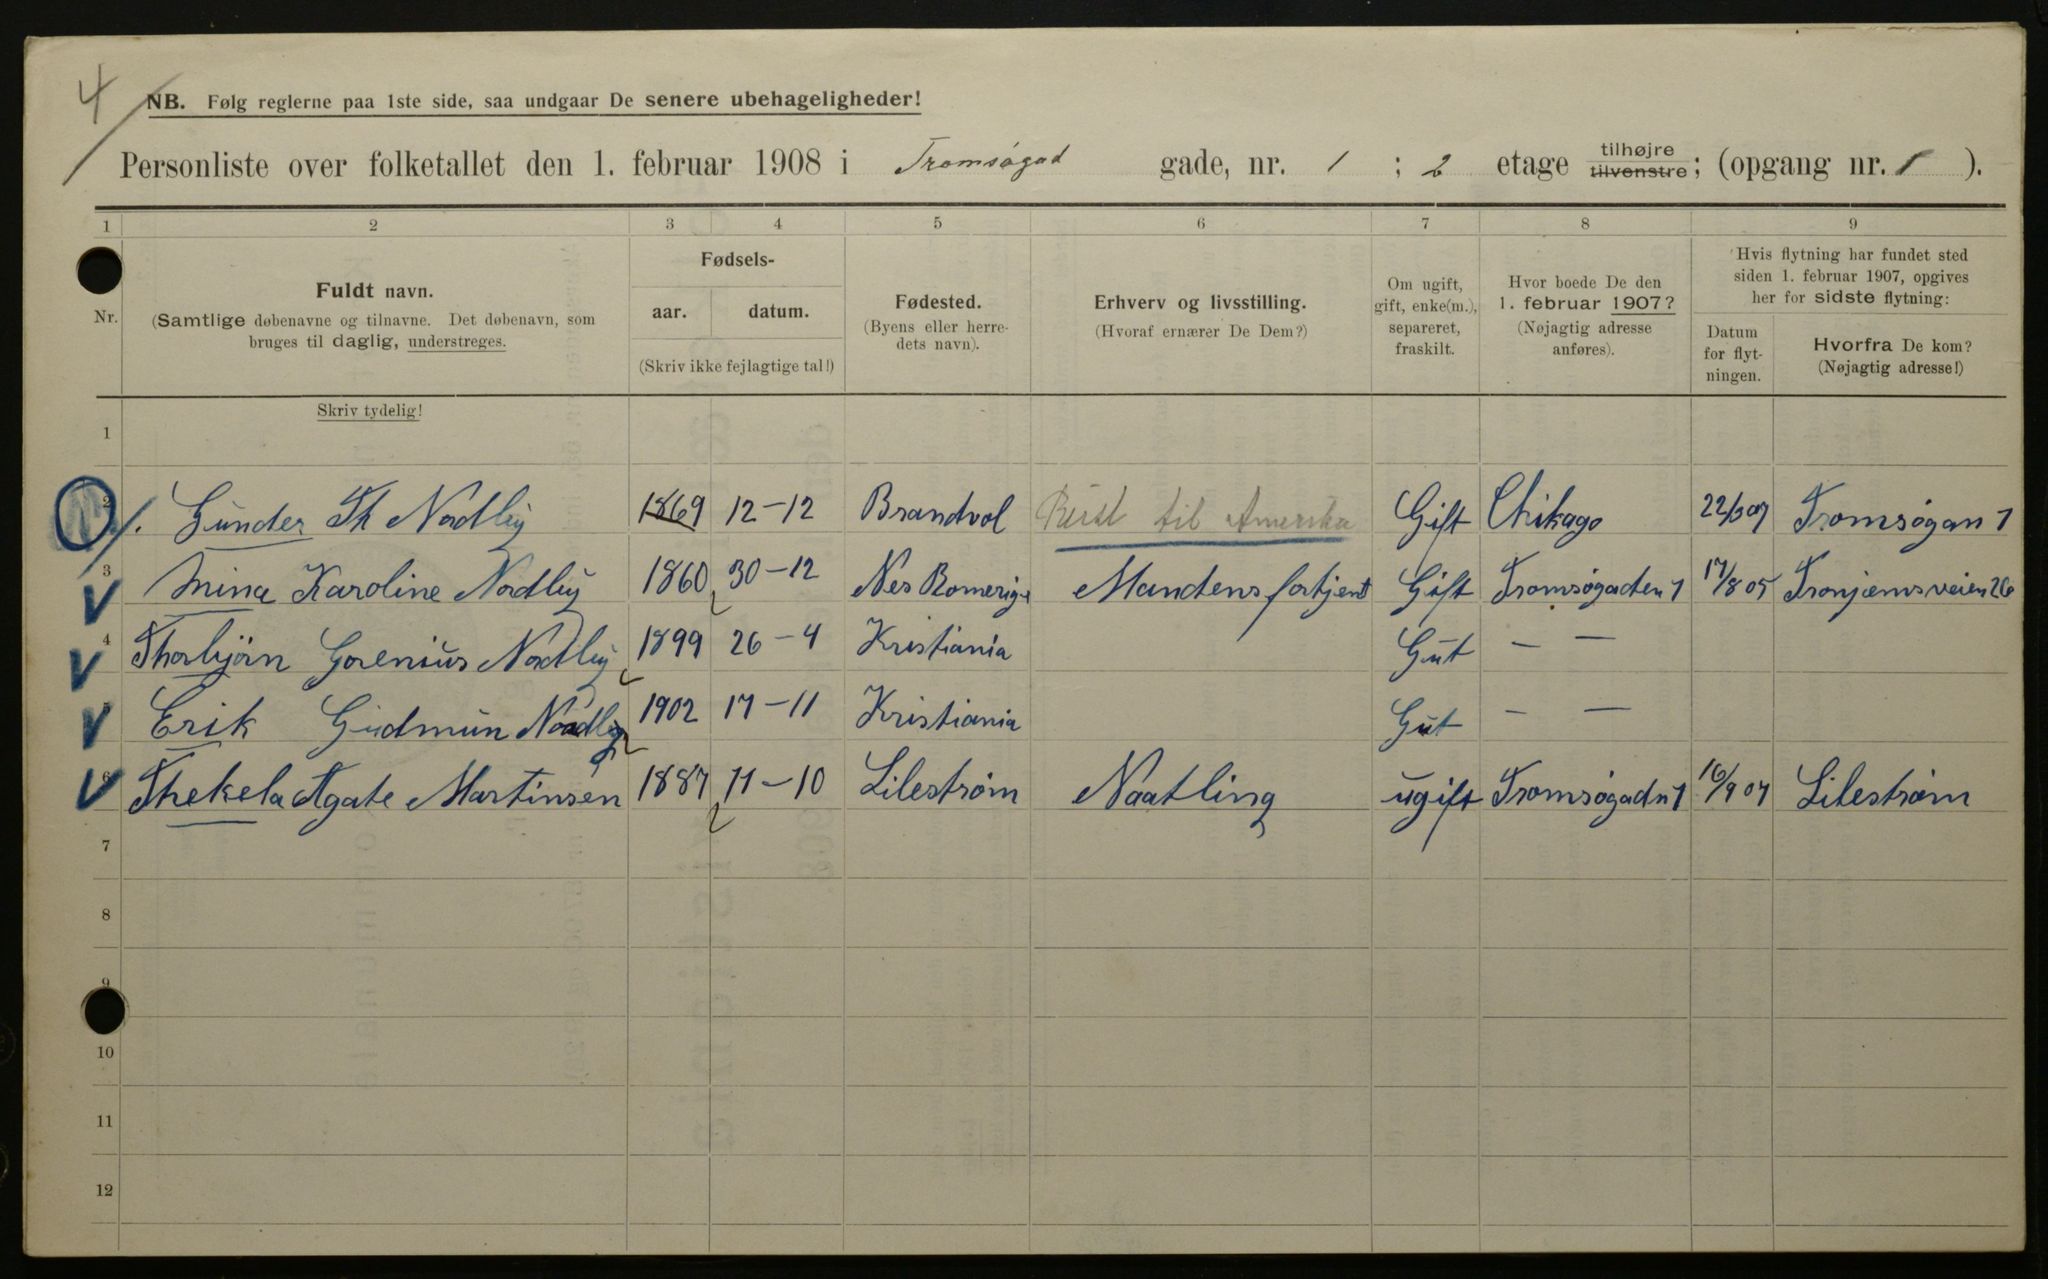 4
NB. Følg reglerne paa 1ste side, saa undgaar De senere ubehageligheder!
Personliste over folketallet den 1. februar 1908 i Tromsøgad gade, nr. 1 ; 2 etage tilhøjre tilvenstre; (opgang nr. 1 ).
1 2 3 4 5 6 7 8 9
Nr.
Fuldt navn.
(Samtlige døbenavne og tilnavne. Det døbenavn, som
bruges til daglig, understreges.
Fødsels-
aar. datum.
(Skriv ikke fejlagtige tal!)
Fødested.
(Byens eller herre-
dets navn).
Erhverv og livsstilling.
(Hvoraf ernærer De Dem?)
Om ugift,
gift, enke(m.),
separeret,
fraskilt.
Hvor boede De den
1. februar 1907?
(Nøjagtig adresse
anføres).
Hvis flytning har fundet sted
siden 1. februar 1907, opgives
her for sidste flytning:
Datum
for flyt-
ningen.
Hvorfra De kom?
(Nøjagtig adresse!)
Skriv tydelig!
1
2 Gunder Th Nordby 1869 12-12 Brandvol Reist til Amerika Gift Chikago Tromsøgan 1
3 Mina Karoline Nordby 1860 30-12 Nes Romerige Mandens fortjent Gift Tromsøgaden 1 17/8 05 Tronjemsveien 26
4 Thorbjörn Gorenius Nordby 1899 26-4 Kristiania Gut — —
5 Erik Gudmun Nordby 1902 17-11 Kristiania Gut — —
6 Thekela Agate Martinsen 1887 11-10 Lilestrøm Naatling ugift Tromsøgadn 1 16/9 07 Lilestrøm
7
8
9
10
11
12